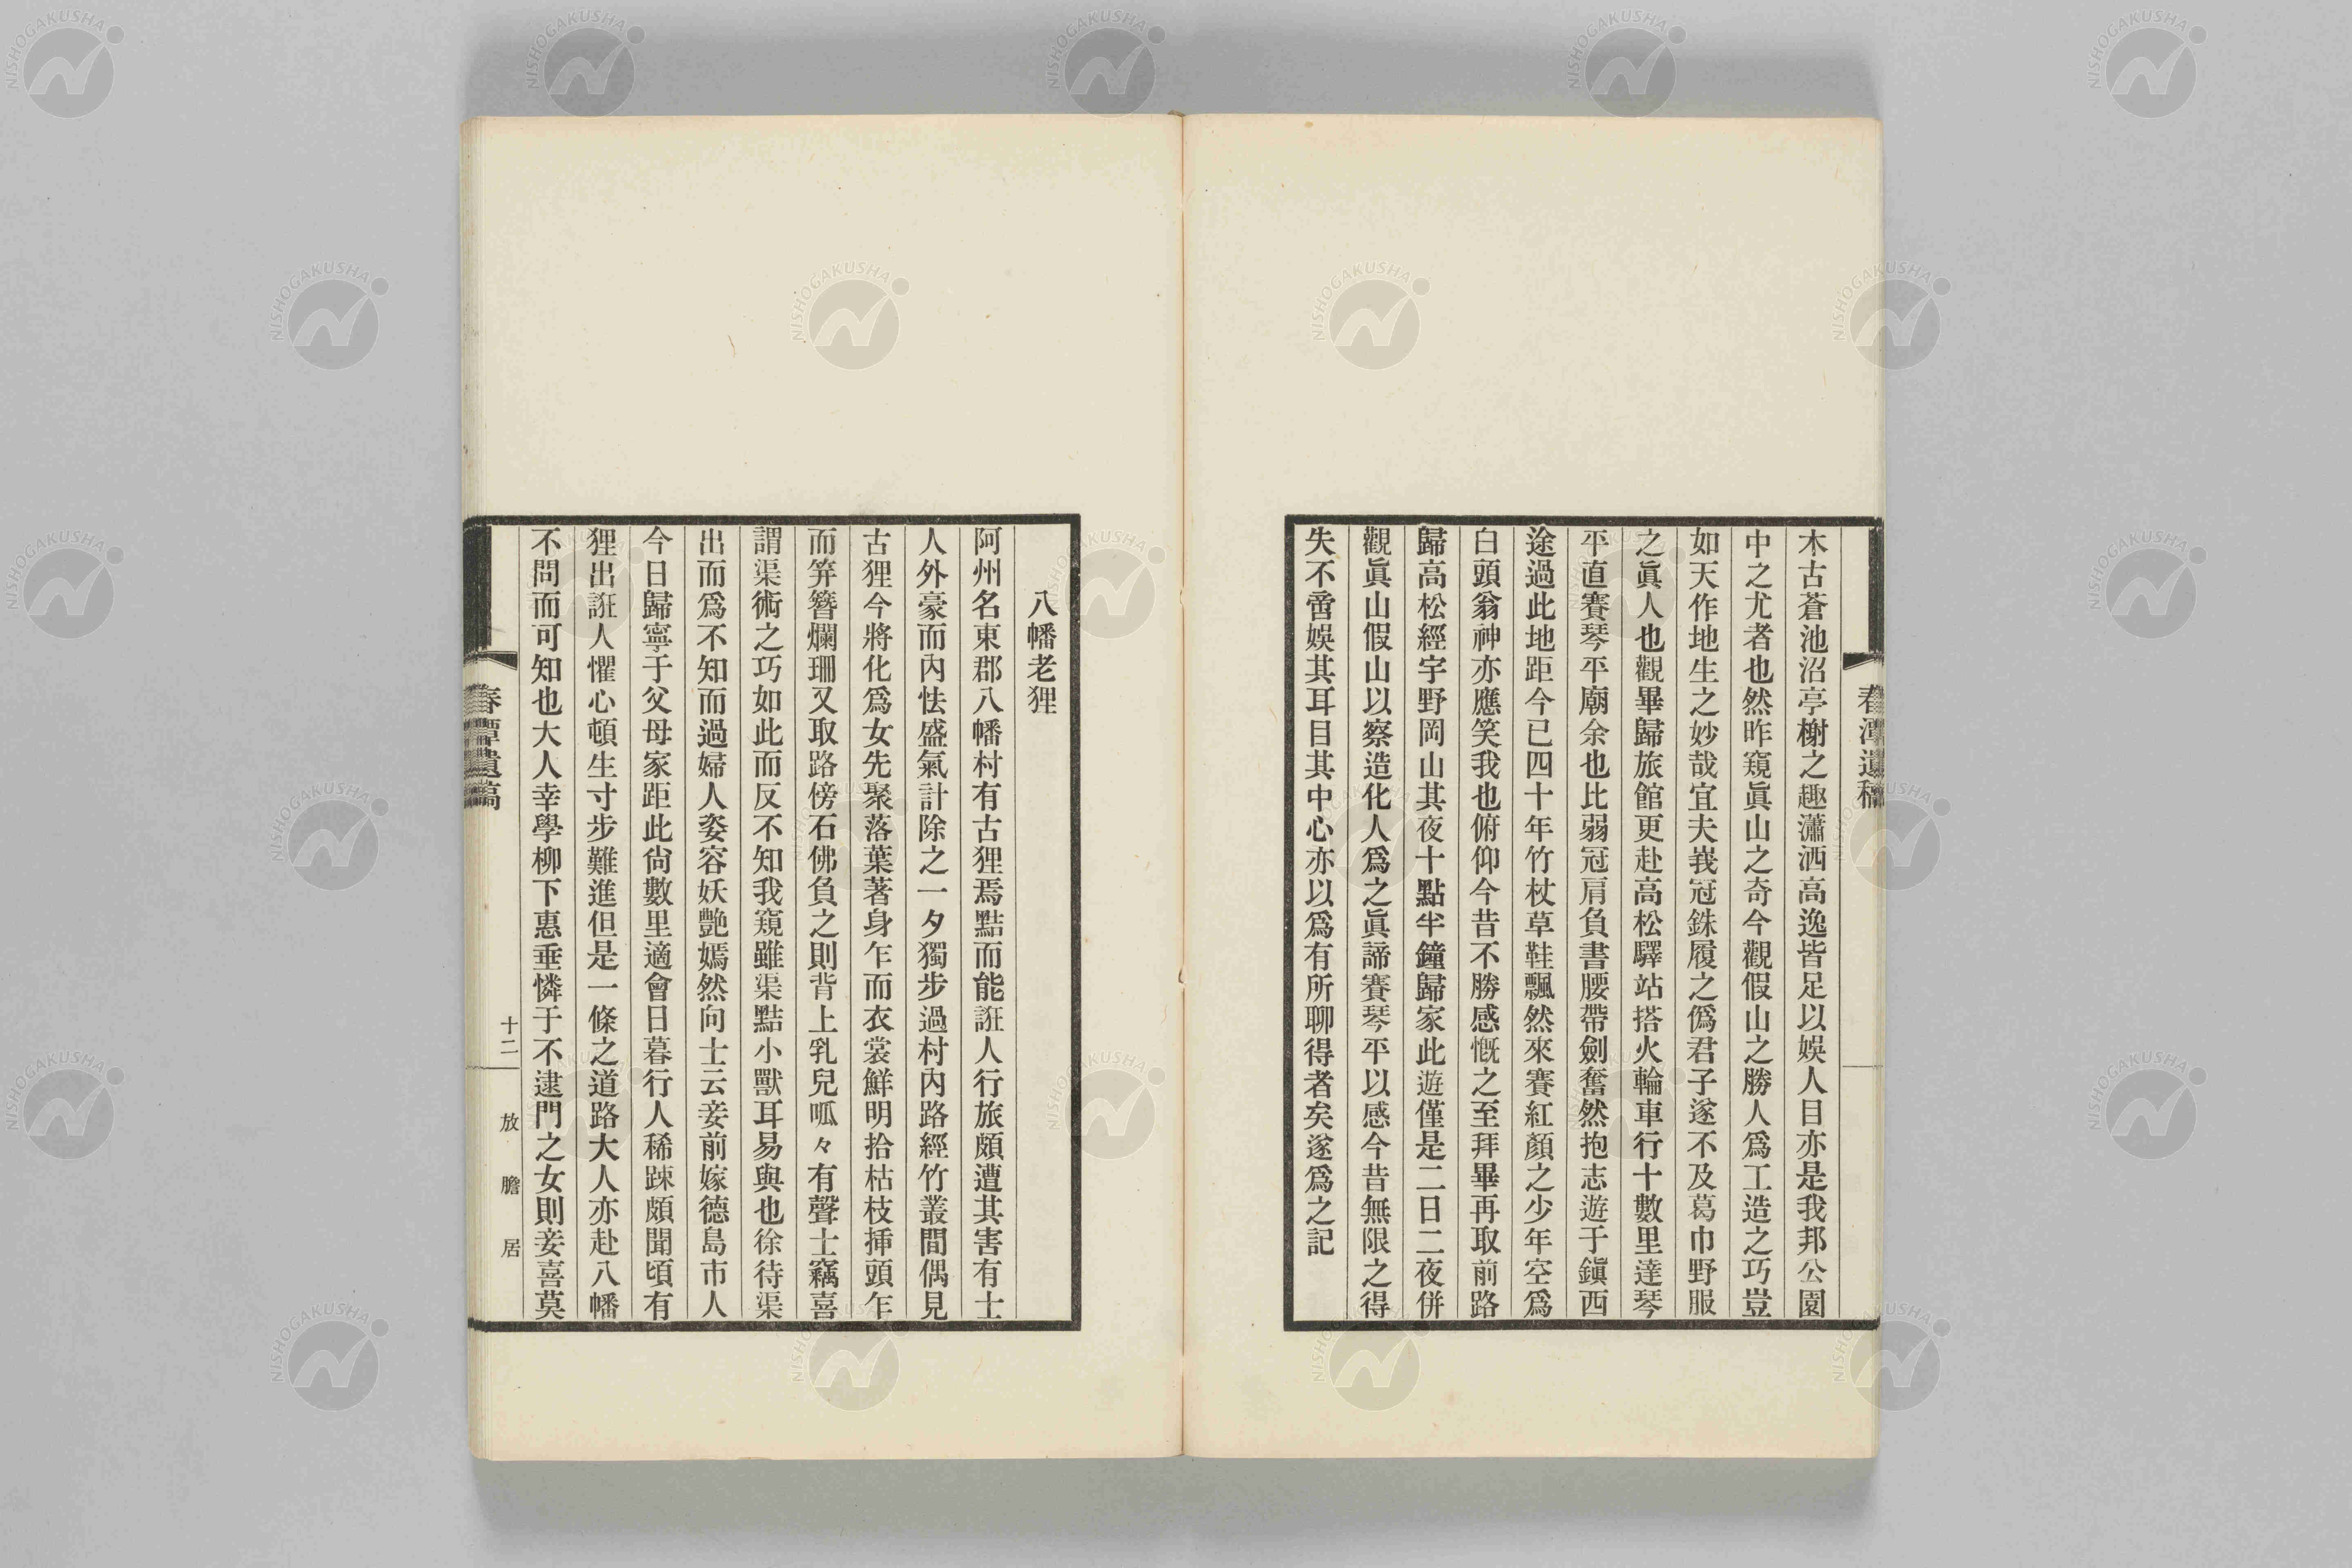 春潭遺稿
木古蒼池沼亭榭之趣瀟洒高逸皆足以娛人目亦是我邦公園
中之尤者也然昨窺眞山之奇今觀假山之勝人爲工造之巧豈
如天作地生之妙哉宜夫峩冠銖履之僞君子遂不及葛巾野服
之眞人也觀畢歸旅館更赴高松驛站搭火輪車行十數里達琴
平直賽琴平廟余也比弱冠肩負書腰帶劍奮然抱志遊于鎭西
途過此地距今已四十年竹杖草鞋飄然來賽紅顏之少年空爲
白頭翁神亦應笑我也俯仰今昔不勝感慨之至拜畢再取前路
歸高松經宇野岡山其夜十點半鐘歸家此遊僅是二日二夜併
觀眞山假山以察造化人爲之眞諦賽琴平以感今昔無限之得
失不啻娛其耳目其中心亦以爲有所聊得者矣遂爲之記
八幡老狸
阿州名東郡八幡村有古狸焉黠而能誑人行旅頗遭其害有士
人外豪而內怯盛氣計除之一夕獨步過村內路經竹叢間偶見
古狸今將化爲女先聚落葉著身乍而衣裳鮮明拾枯枝挿頭乍
而笄簪爛珊又取路傍石佛負之則背上乳兒呱々有聲士竊喜
謂渠術之巧如此而反不知我窺雖渠黠小獸耳易與也徐待渠
出而爲不知而過婦人姿容妖艷嫣然向士云妾前嫁德島市人
今日歸寧于父母家距此尙數里適會日暮行人稀踈頗聞頃有
狸出誑人懼心頓生寸步難進但是一條之道路大人亦赴八幡
不問而可知也大人幸學柳下惠垂憐于不逮門之女則妾喜莫
春潭遺稿
十二
放膽居
NISHOGAKUSHA